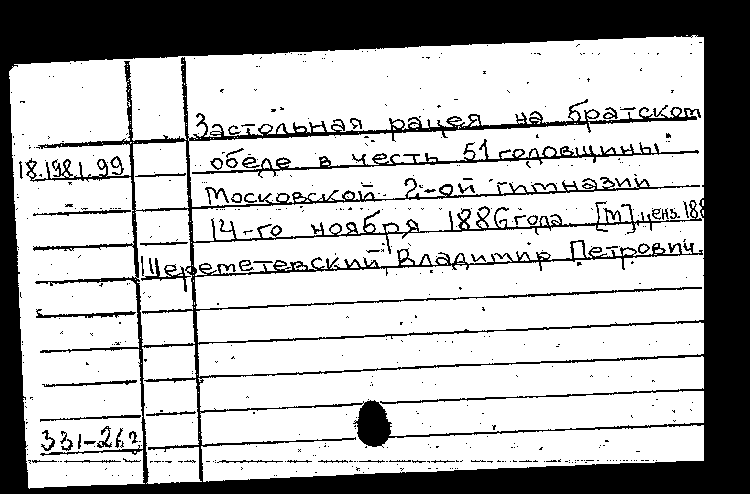 Застольная рацея на братском
18.1981.99 обеде в честь 51 годовщины
Московской 2-ой гимназии
14-го ноября 1886 года [М], ценз. 188
Шереметевский, Владимир Петрович.
331-262